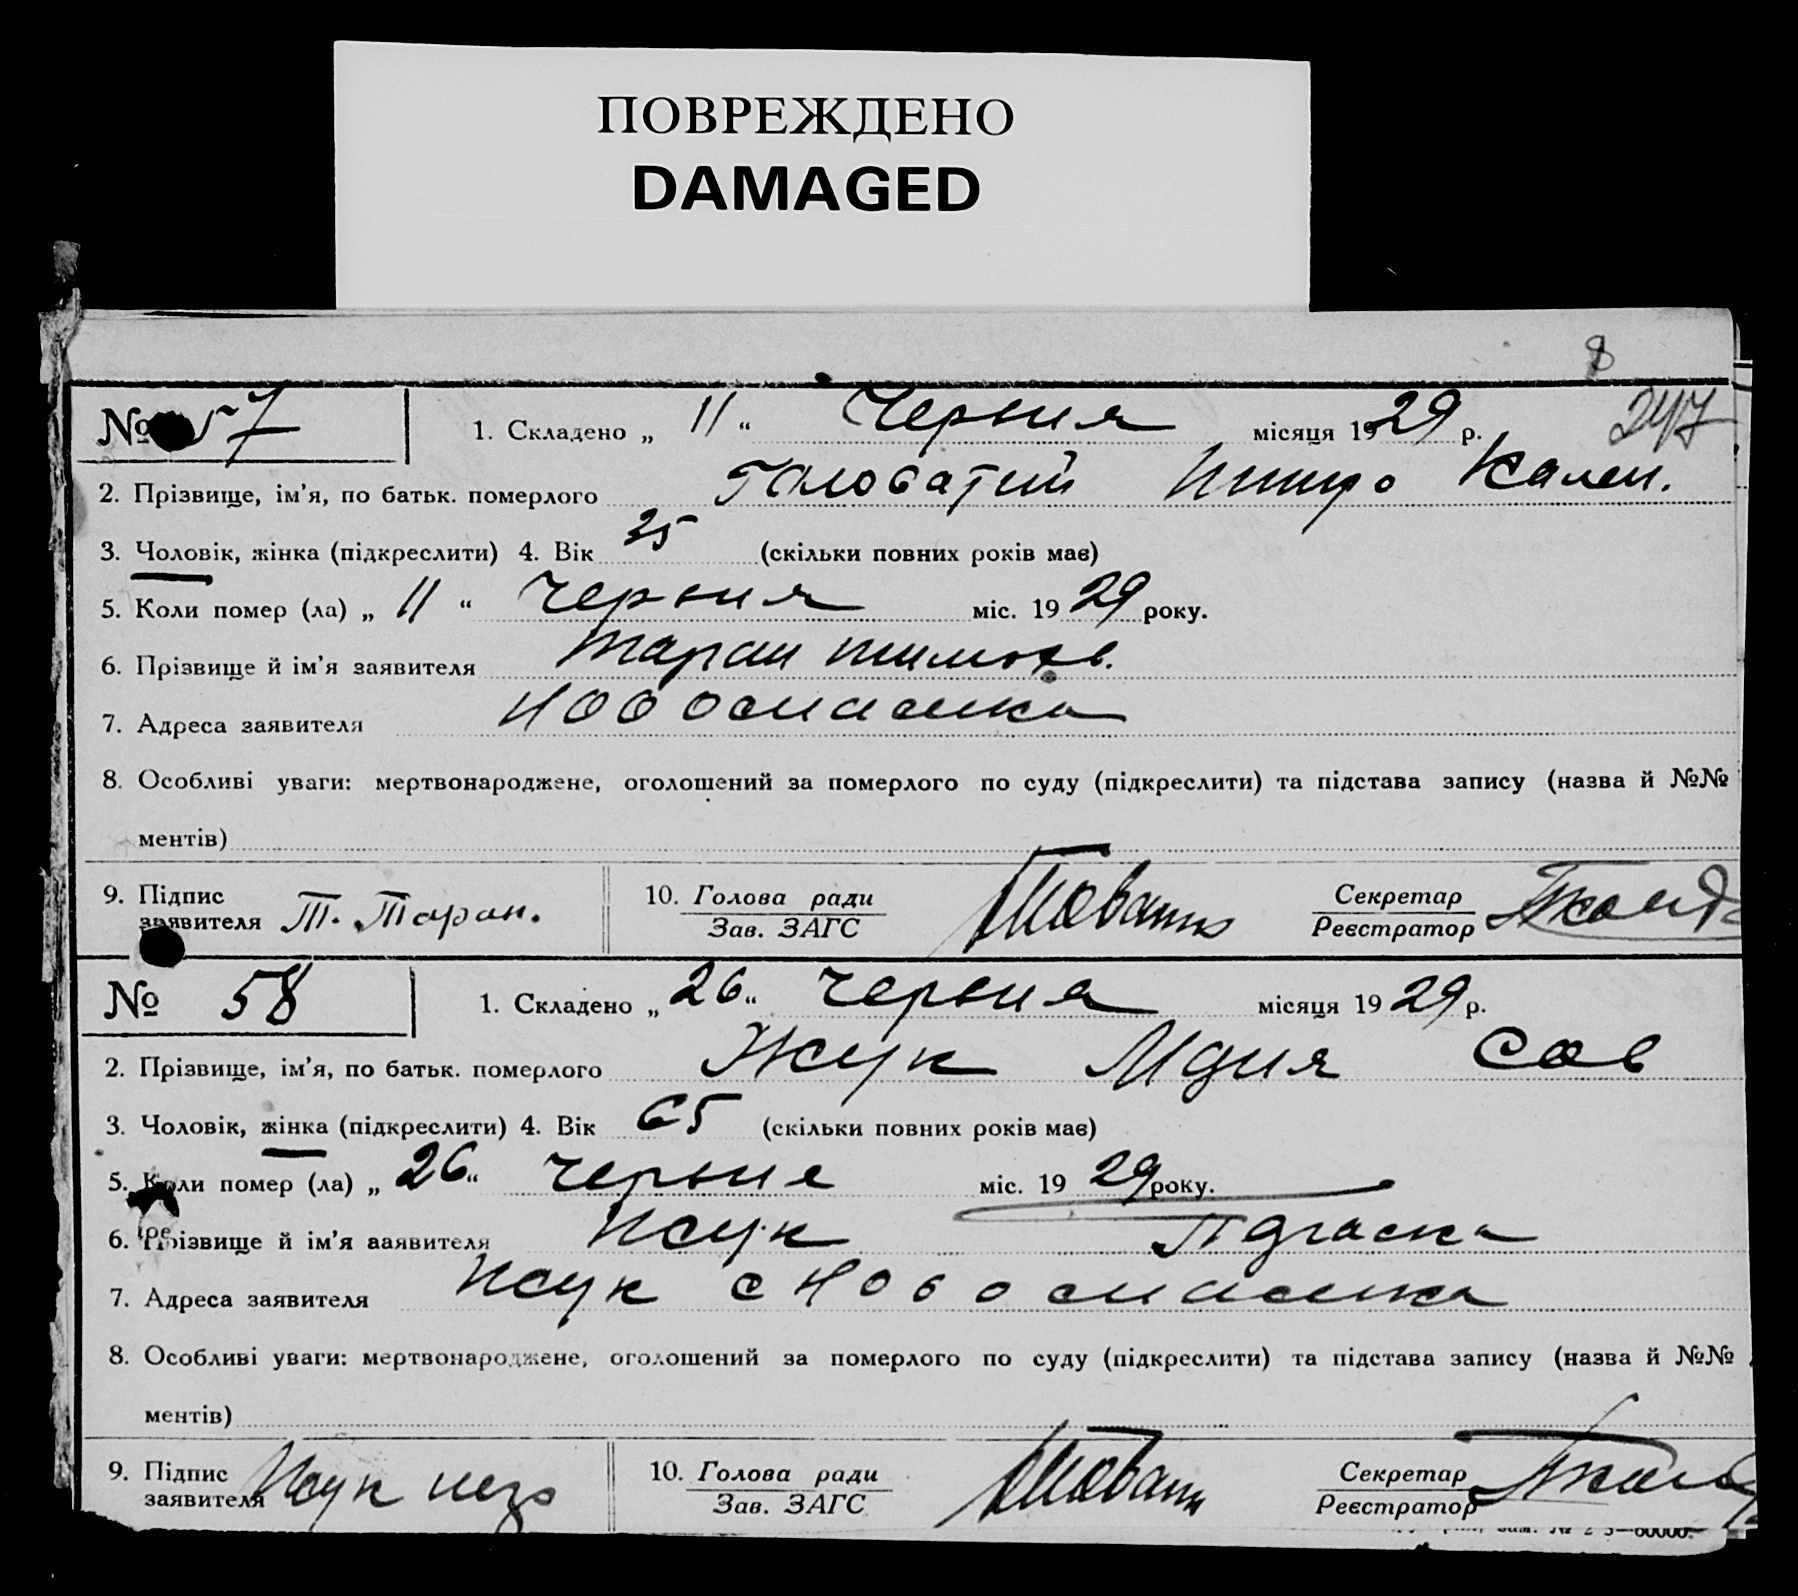 ПОВРЕЖДЕНО
DAMAGED
8
№ 57 1. Складено „ 11 “ Червня місяця 1929 р. 247
2. Прізвище, ім’я, по батьк. померлого Головатий Кален.
3. Чоловік, жінка (підкреслити) 4. Вік 35 (скільки повних років має)
5. Коли помер (ла) „ 11 “ Червня міс. 19 29 року.
6. Прізвище й ім’я заявителя Таран Тимох.
7. Адреса заявителя Новоспаська
8. Особливі уваги: мертвонароджене, оголошений за померлого по суду (підкреслити) та підстава запису (назва й №№
ментів)
9. Підпис заявителя Т. Таран. 10. Голова ради Зав. ЗАГС Секретар Реєстратор
№ 58 1. Складено „ 26 “ Червня місяця 19 29 р.
2. Прізвище, ім’я, по батьк. померлого Жук Сав
3. Чоловік, жінка (підкреслити) 4. Вік 65 (скільки повних років має)
5. Коли помер (ла) „ 26 “ Червня міс. 19 29 року.
6. Прізвище й ім’я ааявителя Жук
7. Адреса заявителя Жук с Новоспаська
8. Особливі уваги: мертвонароджене, оголошений за померлого по суду (підкреслити) та підстава запису (назва й №№
ментів)
9. Підпис заявителя Жук 10. Голова ради Зав. ЗАГС Секретар Реєстратор